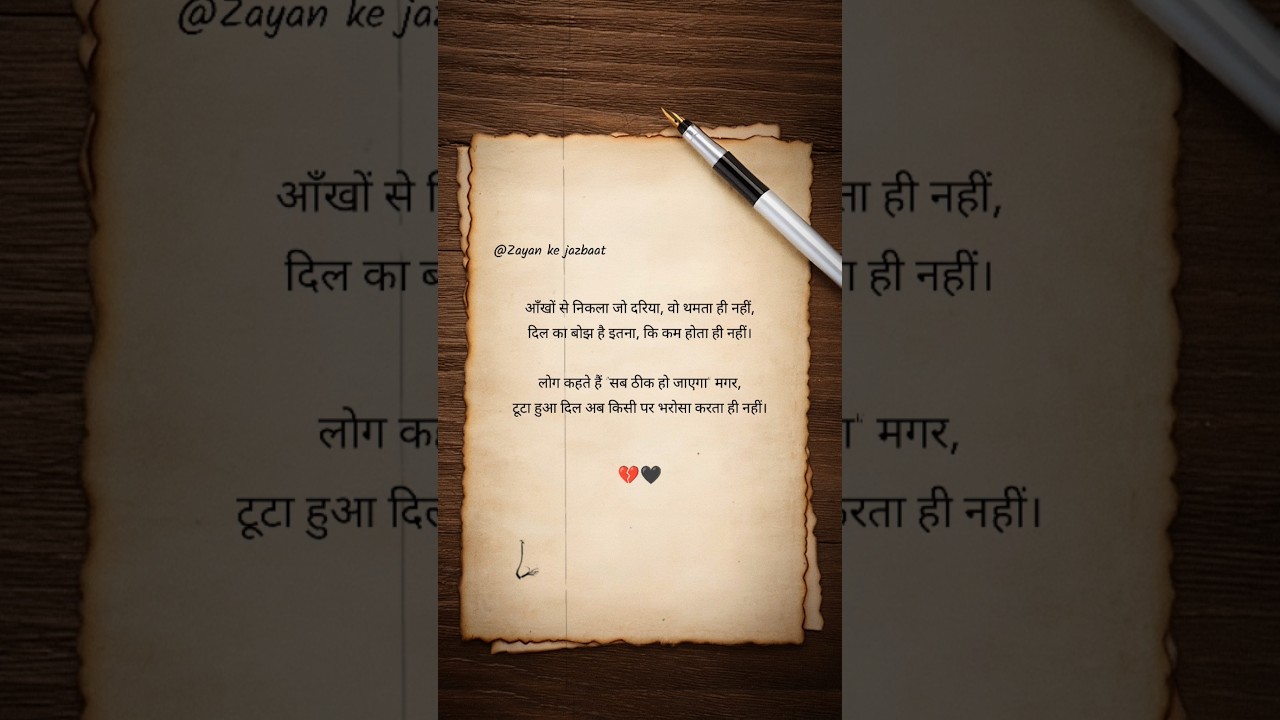 @Zayan ke jazbaat
आँखों से निकला जो दरिया, वो थमता ही नहीं,
दिल का बोझ है इतना, कि कम होता ही नहीं।
लोग कहते हैं "सब ठीक हो जाएगा" मगर,
टूटा हुआ दिल अब किसी पर भरोसा करता ही नहीं।